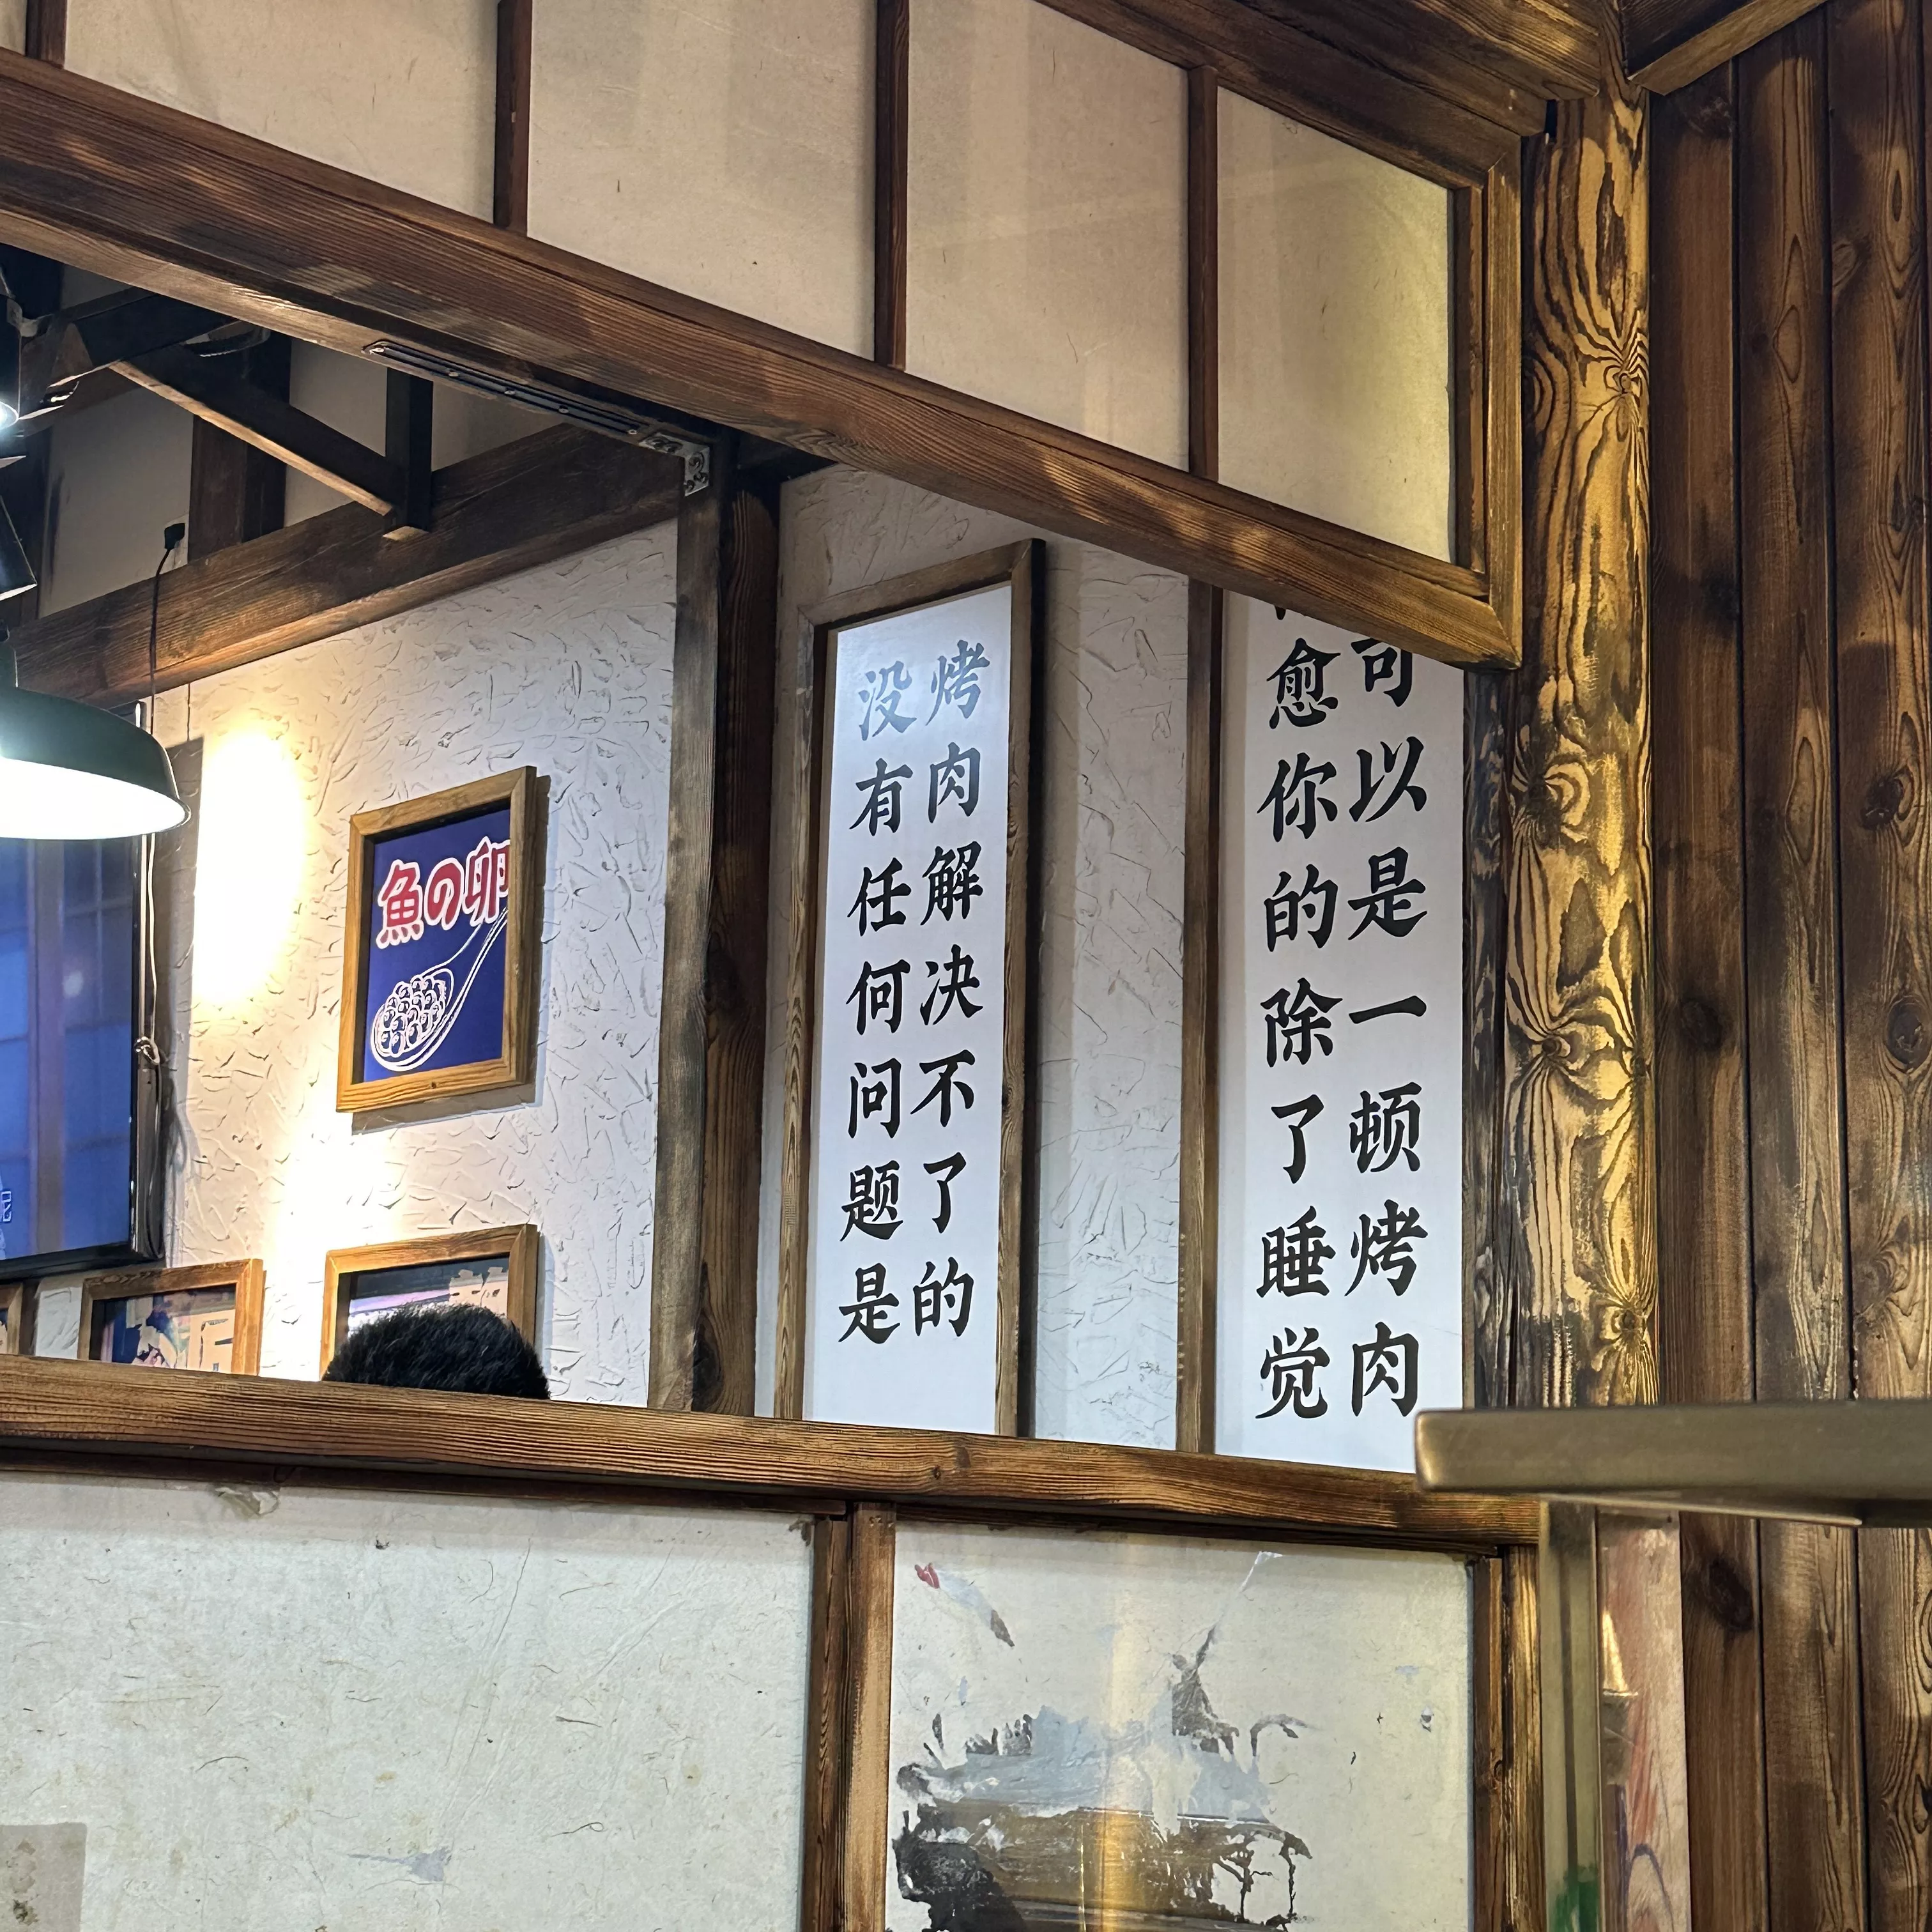 魚の卵
没有任何问题是
烤肉解决不了的
愈你的除了睡觉
可以是一顿烤肉